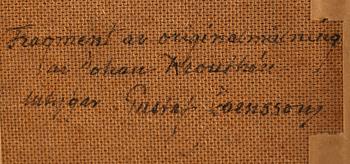 Fragment av originalmålning
av Johan Krouthén
intygar Gustaf Svensson